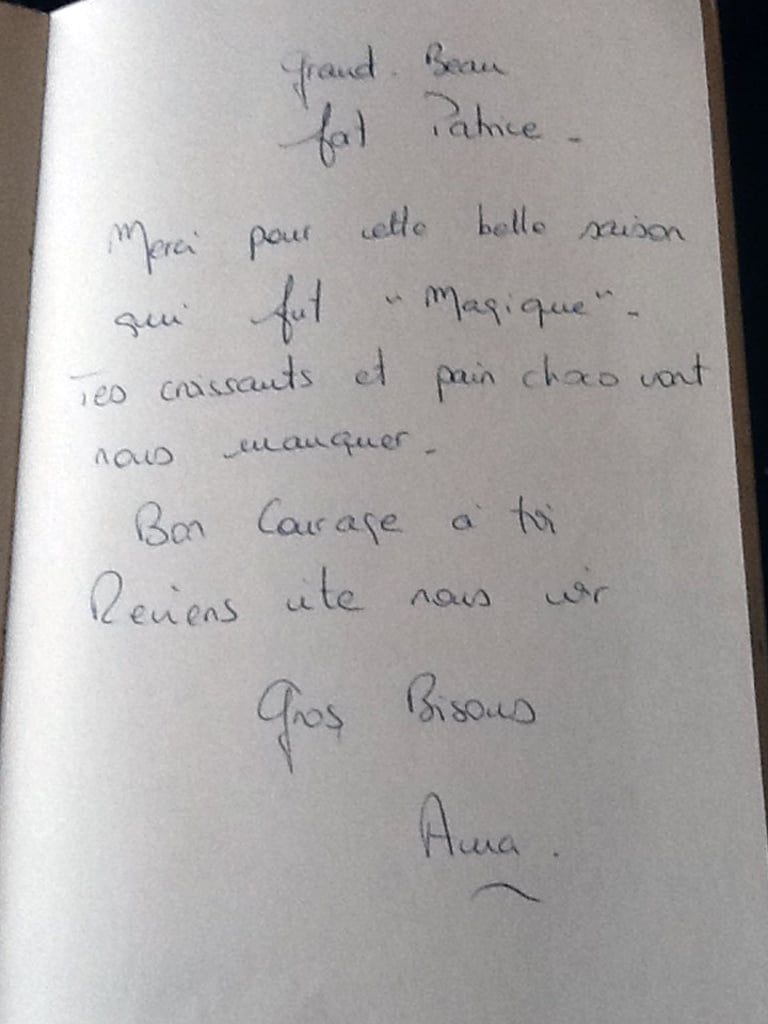 Grand. Beau
fat Patrice -
Merci pour cette belle saison
qui fut "Magique" -
Tes croissants et pain choco vont
nous manquer -
Bon Courage à toi
Reviens vite nous voir
Gros Bisous